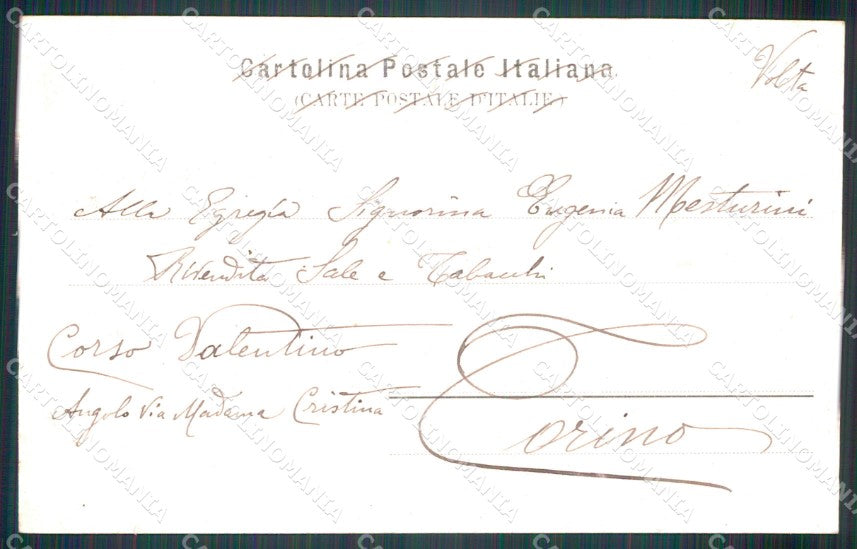 Cartolina Postale Italiana
(CARTE POSTALE D'ITALIE)
Volta
Alla Egregia Signorina Eugenia Mesturini
Rivendita Sale e Tabacchi
Corso Valentino
Angolo Via Madama Cristina
Torino
CARTOLINOMANIA